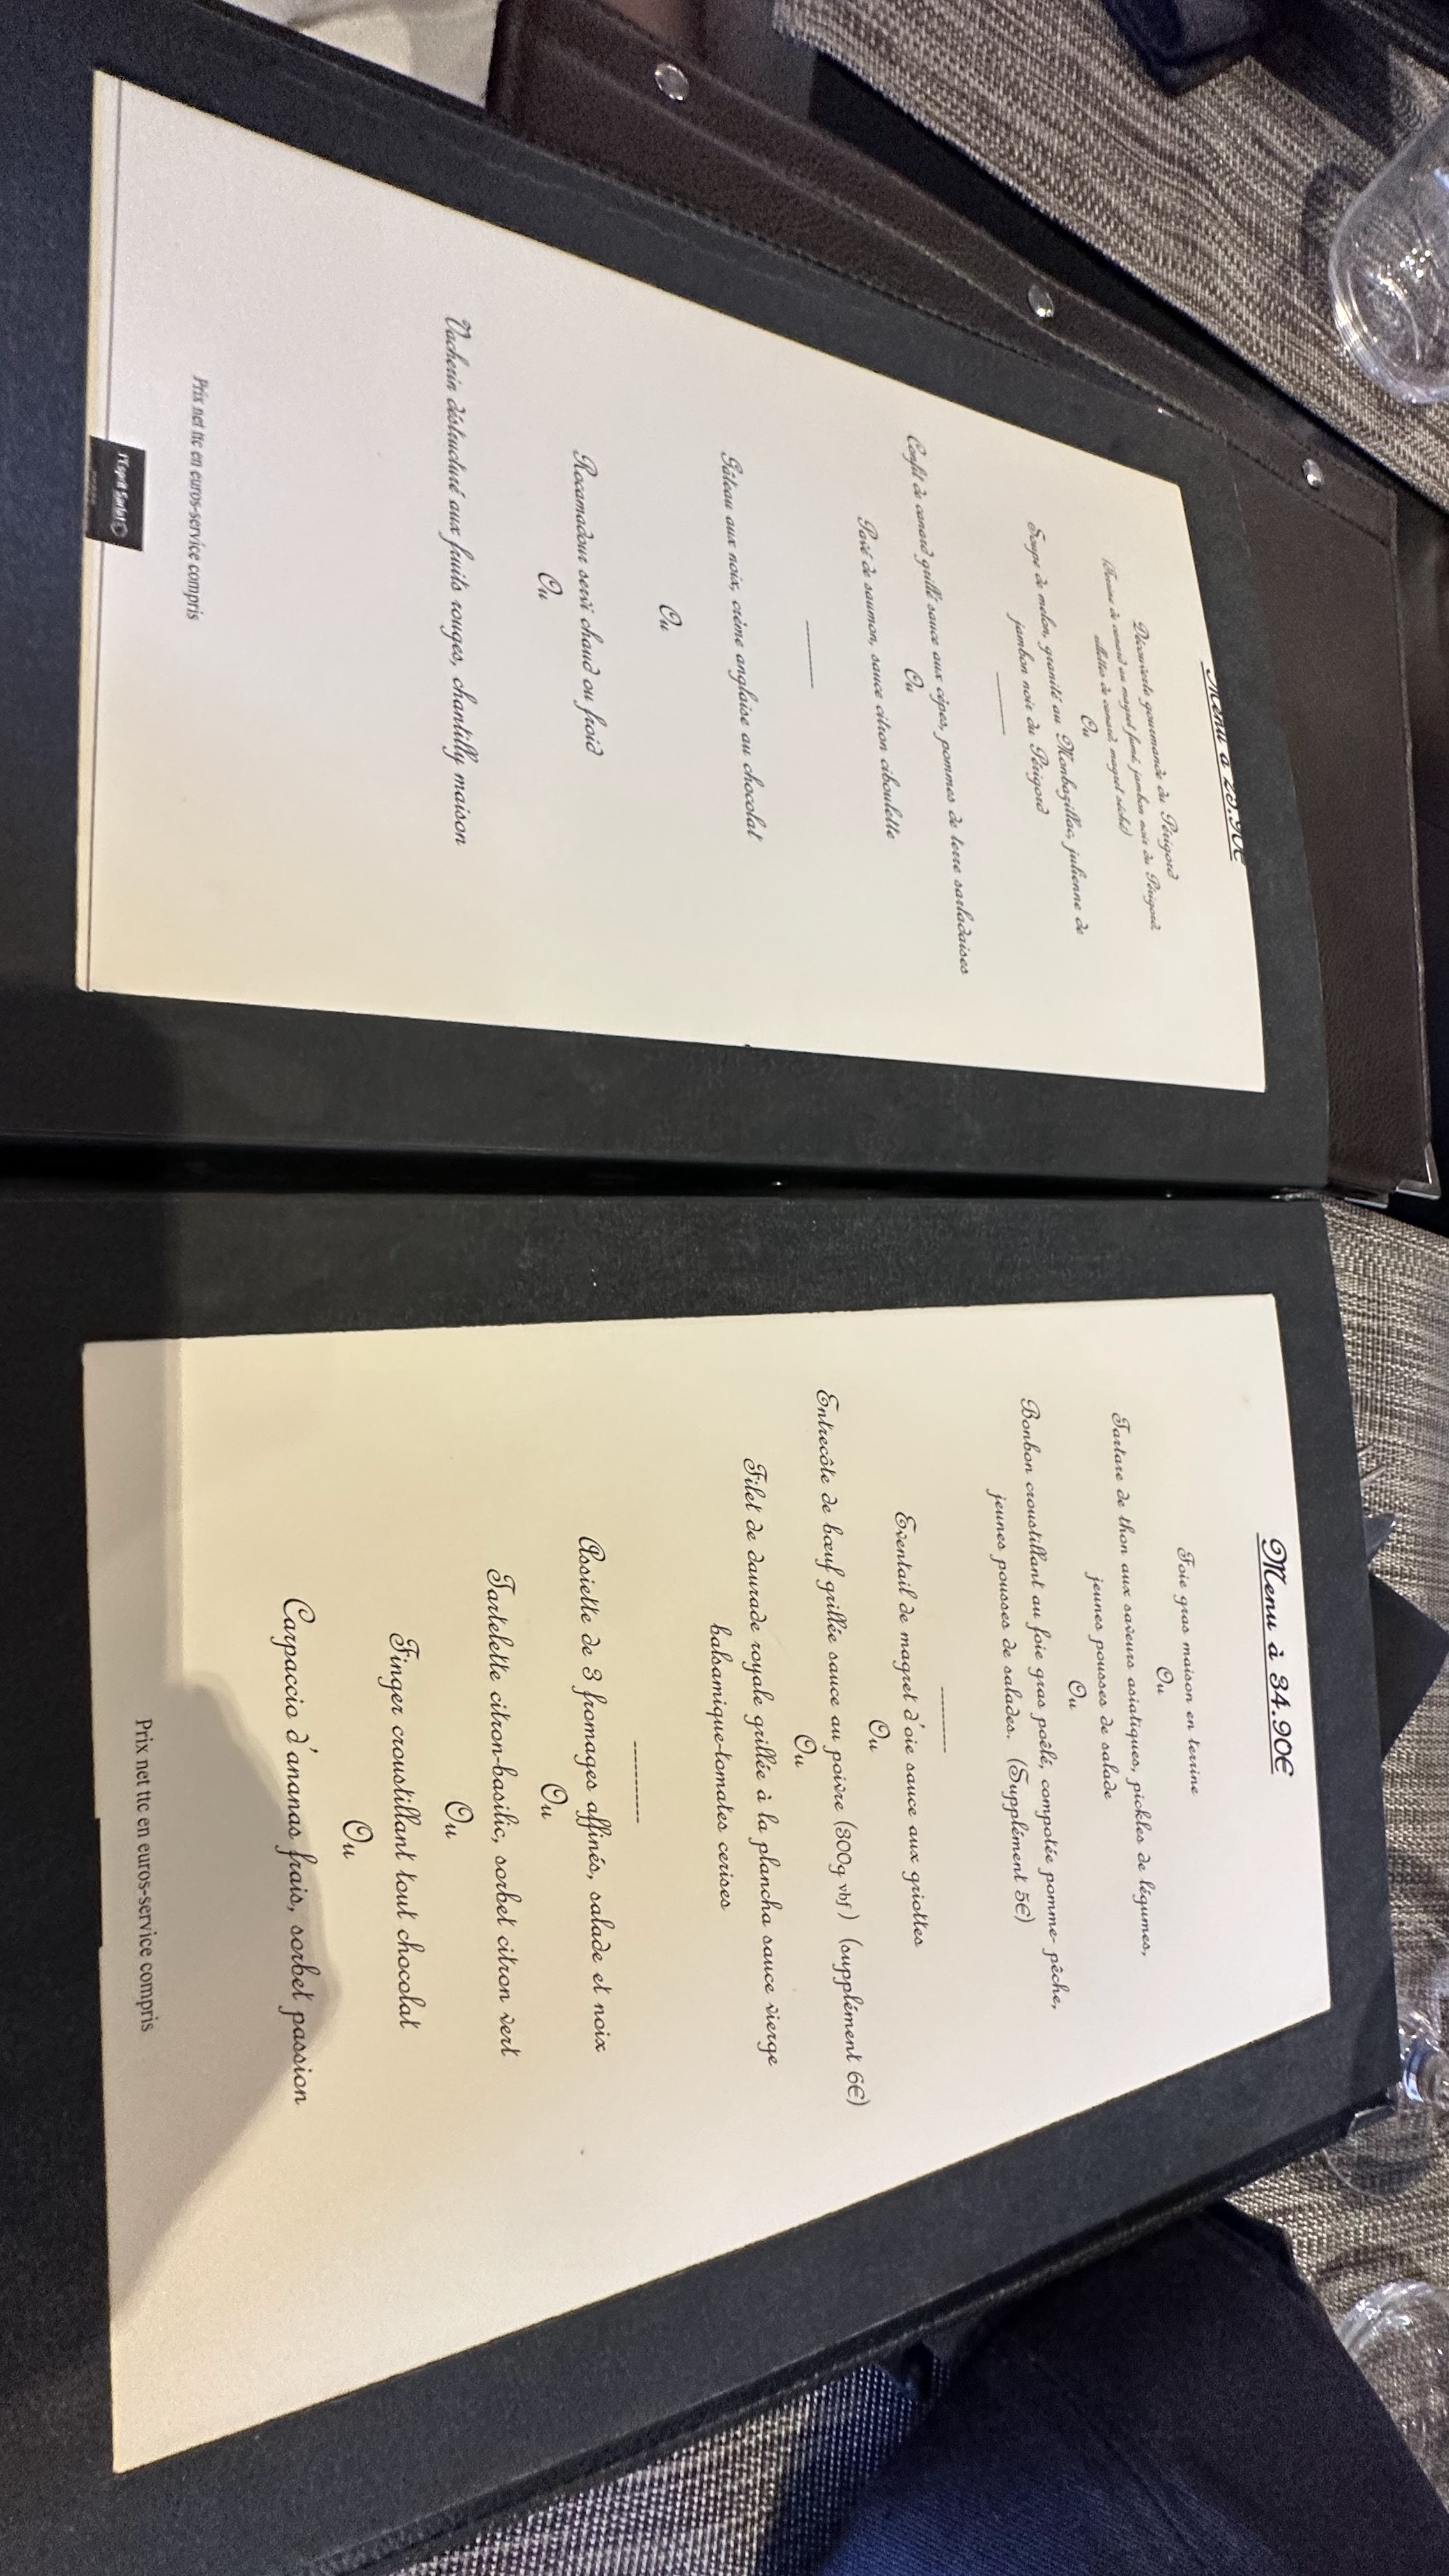 Menu à
Découverte gourmande du Périgord
de canard au magret fumé, jambon noir du Périgord,
de canard, magret séché)
Ou
Soupe de melon, granité au Monbazillac, julienne de
jambon noir du Périgord
Confit de canard grillé sauce aux cèpes, pommes de terre sarladaises
Ou
Pavé de saumon, sauce citron ciboulette
Gâteau aux noix, crème anglaise au chocolat
Ou
Rocamadour servi chaud ou froid
Ou
Vacherin déstructuré aux fruits rouges, chantilly maison
Prix net ttc en euros-service compris
l'Esprit Sarlat
Menu à 34.90€
Foie gras maison en terrine
Ou
Tartare de thon aux saveurs asiatiques, pickles de légumes,
jeunes pousses de salade
Ou
Bonbon croustillant au foie gras poêlé, compotée pomme-pêche,
jeunes pousses de salades. (Supplément 5€)
----------
Eventail de magret d'oie sauce aux griottes
Ou
Entrecôte de bœuf grillée sauce au poivre (300g vbf) (supplément 6€)
Ou
Filet de daurade royale grillée à la plancha sauce vierge
balsamique-tomates cerises
----------
Assiette de 3 fromages affinés, salade et noix
Ou
Tartelette citron-basilic, sorbet citron vert
Ou
Finger croustillant tout chocolat
Ou
Carpaccio d'ananas frais, sorbet passion
Prix net ttc en euros-service compris